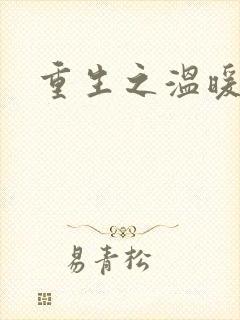 重生之温暖
易青松